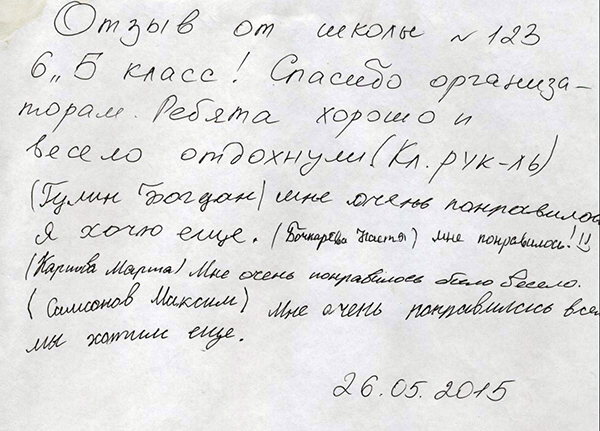 Отзыв от школы № 123
6 „Б класс! Спасибо организа-
торам. Ребята хорошо и
весело отдохнули (Кл. рук-ль)
(Гулин Богдан) мне очень понравилось
я хочу еще. (Бочкарева Настя) мне понравилось!
(Карпова Марта) Мне очень понравилось было весело.
(Самсонов Максим) Мне очень понравилось все
мы хотим еще.
26.05.2015